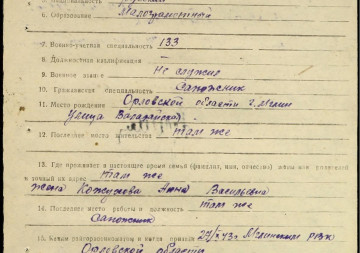 6. Образование Малограмотный
7. Военно-учетная специальность 133
8. Должностная квалификация
9. Военное звание Не служил
10. Гражданская специальность Сапожник
11. Место рождения Орловской области г. Мглин
Улица
12. Последнее место жительства там же
13. Где проживает в настоящее время семья (фамилия, имя, отчество) жены или
и точный их адрес там же
жена Кожухова Анна Васильевна
14. Последнее место работы и должность там же
Сапожник
15. Каким райвоенкоматом и когда призван Мглинским РВК
Орловской области